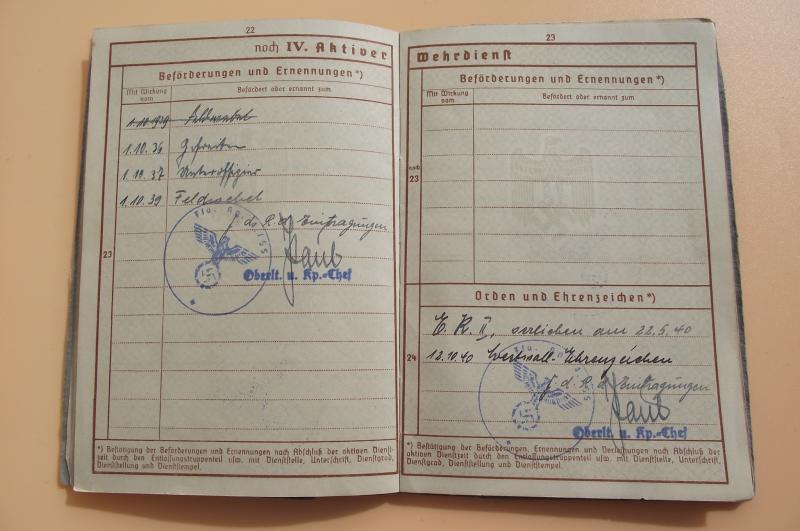 22
noch IV. Aktiver
Beförderungen und Ernennungen*)
Mit Wirkung vom
Befördert oder ernannt zum
1.10.1939 Feldwebel
1.10.36 Gefreiten
1.10.37 Unteroffizier
1.10.39 Feldwebel
f. d. R. d. Eintragungen
23
Oberlt. u. Kp.-Chef
*) Bestätigung der Beförderungen und Ernennungen nach Abschluß der aktiven Dienst-
zeit durch den Entlassungstruppenteil usw. mit Dienststelle, Unterschrift, Dienstgrad,
Dienststellung und Dienststempel.
23
Wehrdienst
Beförderungen und Ernennungen*)
Mit Wirkung vom
Befördert oder ernannt zum
noch
23
Orden und Ehrenzeichen*)
E. K. II, verliehen am 22.5.40
24
12.10.40 Westwall-Ehrenzeichen
f. d. R. d. Eintragungen
Oberlt. u. Kp.-Chef
*) Bestätigung der Beförderungen, Ernennungen und Verleihungen nach Abschluß der
aktiven Dienstzeit durch den Entlassungstruppenteil usw. mit Dienststelle, Unterschrift,
Dienstgrad, Dienststellung und Dienststempel.